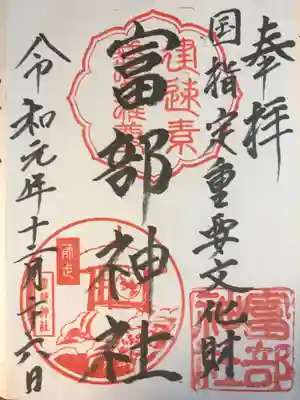 奉拝
国指定重要文化財
富部神社
令和元年十二月二十六日
建速素
師走
富部神社
富部神社